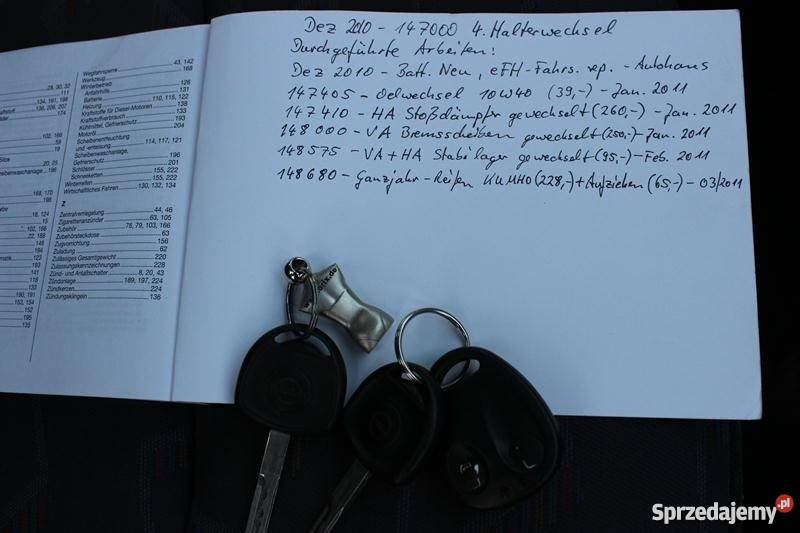 Dez 2010 - 147000 4. Halterwechsel
Durchgeführte Arbeiten:
Dez 2010 - Batt. Neu, eFH-Fahrs. rep. - Autohaus
147405 - Oelwechsel 10W40 (39,-) - Jan. 2011
147410 - HA Stoßdämpfer gewechselt (260,-) - Jan. 2011
148000 - VA Bremsscheiben gewechselt (250,-) - Jan. 2011
148575 - VA + HA Stabilager gewechselt (95,-) - Feb. 2011
148680 - Ganzjahr-Reifen KUMHO (228,-) + Aufziehen (65,-) - 03/2011
28, 30, 32
111
134, 161, 198
136, 206, 207
174
102, 166
59
19
20, 25
196
168, 170
198
18, 124
15
102, 166
22, 188
148
194
123
193
141
118
133
190, 191
153, 154
152
195
135
Wegfahrsperre 43, 142
Werkzeug 168
Winterbetrieb 126
Anfahrhilfe 131
Batterie 110, 115, 122
Heizung 138
Kraftstoffe für Diesel-Motoren 133
Kraftstoffverbrauch 133
Kühlmittel, Gefrierschutz 193
Motoröl 204
Scheibenentfeuchtung
und -enteisung 114, 117, 121
Scheibenwaschanlage,
Gefrierschutz 196
Schlösser 201
Schneeketten 155, 222
Winterreifen 155, 222
Wirtschaftliches Fahren 130, 132, 134
Z
Zentralverriegelung 44, 46
Zigarettenanzünder 63, 105
Zubehör 78, 79, 103, 166
Zubehörsteckdose 63
Zugvorrichtung 156
Zuladung 62
Zulässiges Gesamtgewicht 220
Zulassungskennzeichnungen 228
Zünd- und Anlaßschalter 8, 20, 43
Zündanlage 189, 197, 224
Zündkerzen 224
Zündungsklingeln 136
Sprzedajemy.pl